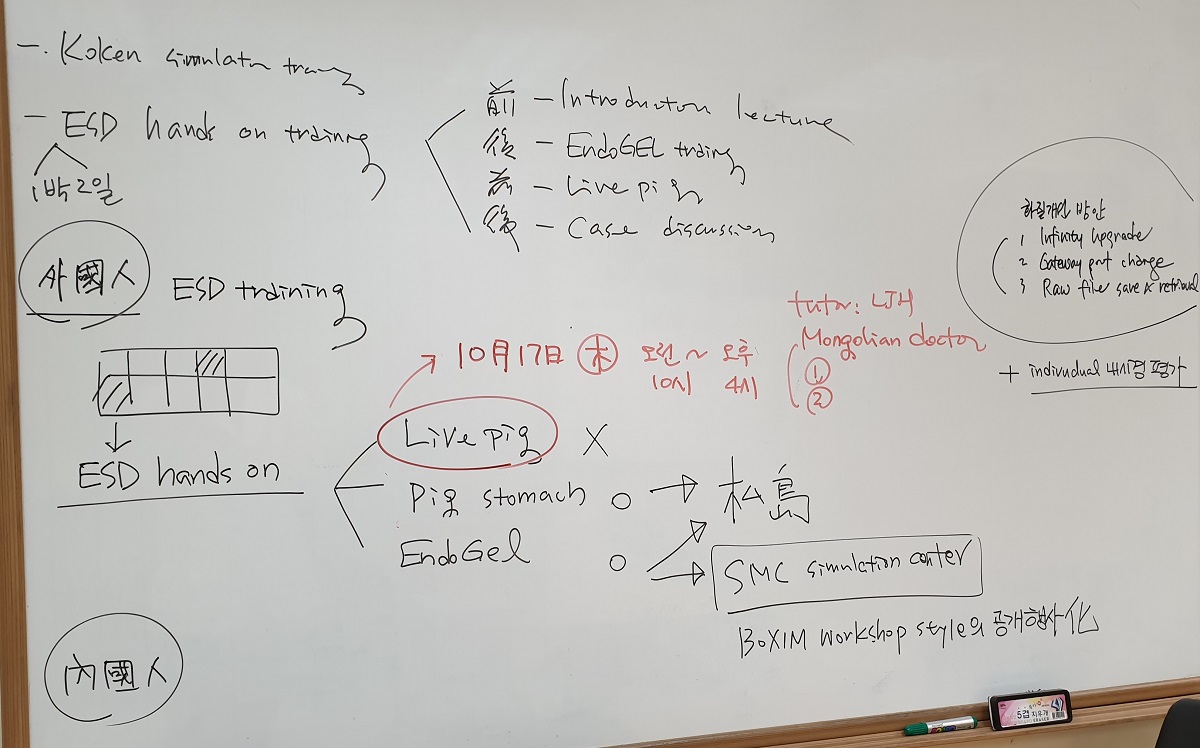 一. Koken simulatn trang
一 ESD hands on training
1박2일
前 — Introduction lecture
後 — EndoGEL training
前 — Live pig
後 — Case discussion
外國人
ESD training
ESD hands on
10月17日 木 오전 ~ 오후
10시 4시
tutor: LJH
Mongolian doctor
①
②
Live pig X
Pig stomach ○ → 松島
EndoGel ○
SMC simulation center
BoXIM workshop style의 공개행사化
內國人
화질개선 방안
1 Infinity Upgrade
2 Gateway port change
3 Raw file save & retrieval
+ indivudual 내시경 평가
5겹 지우개